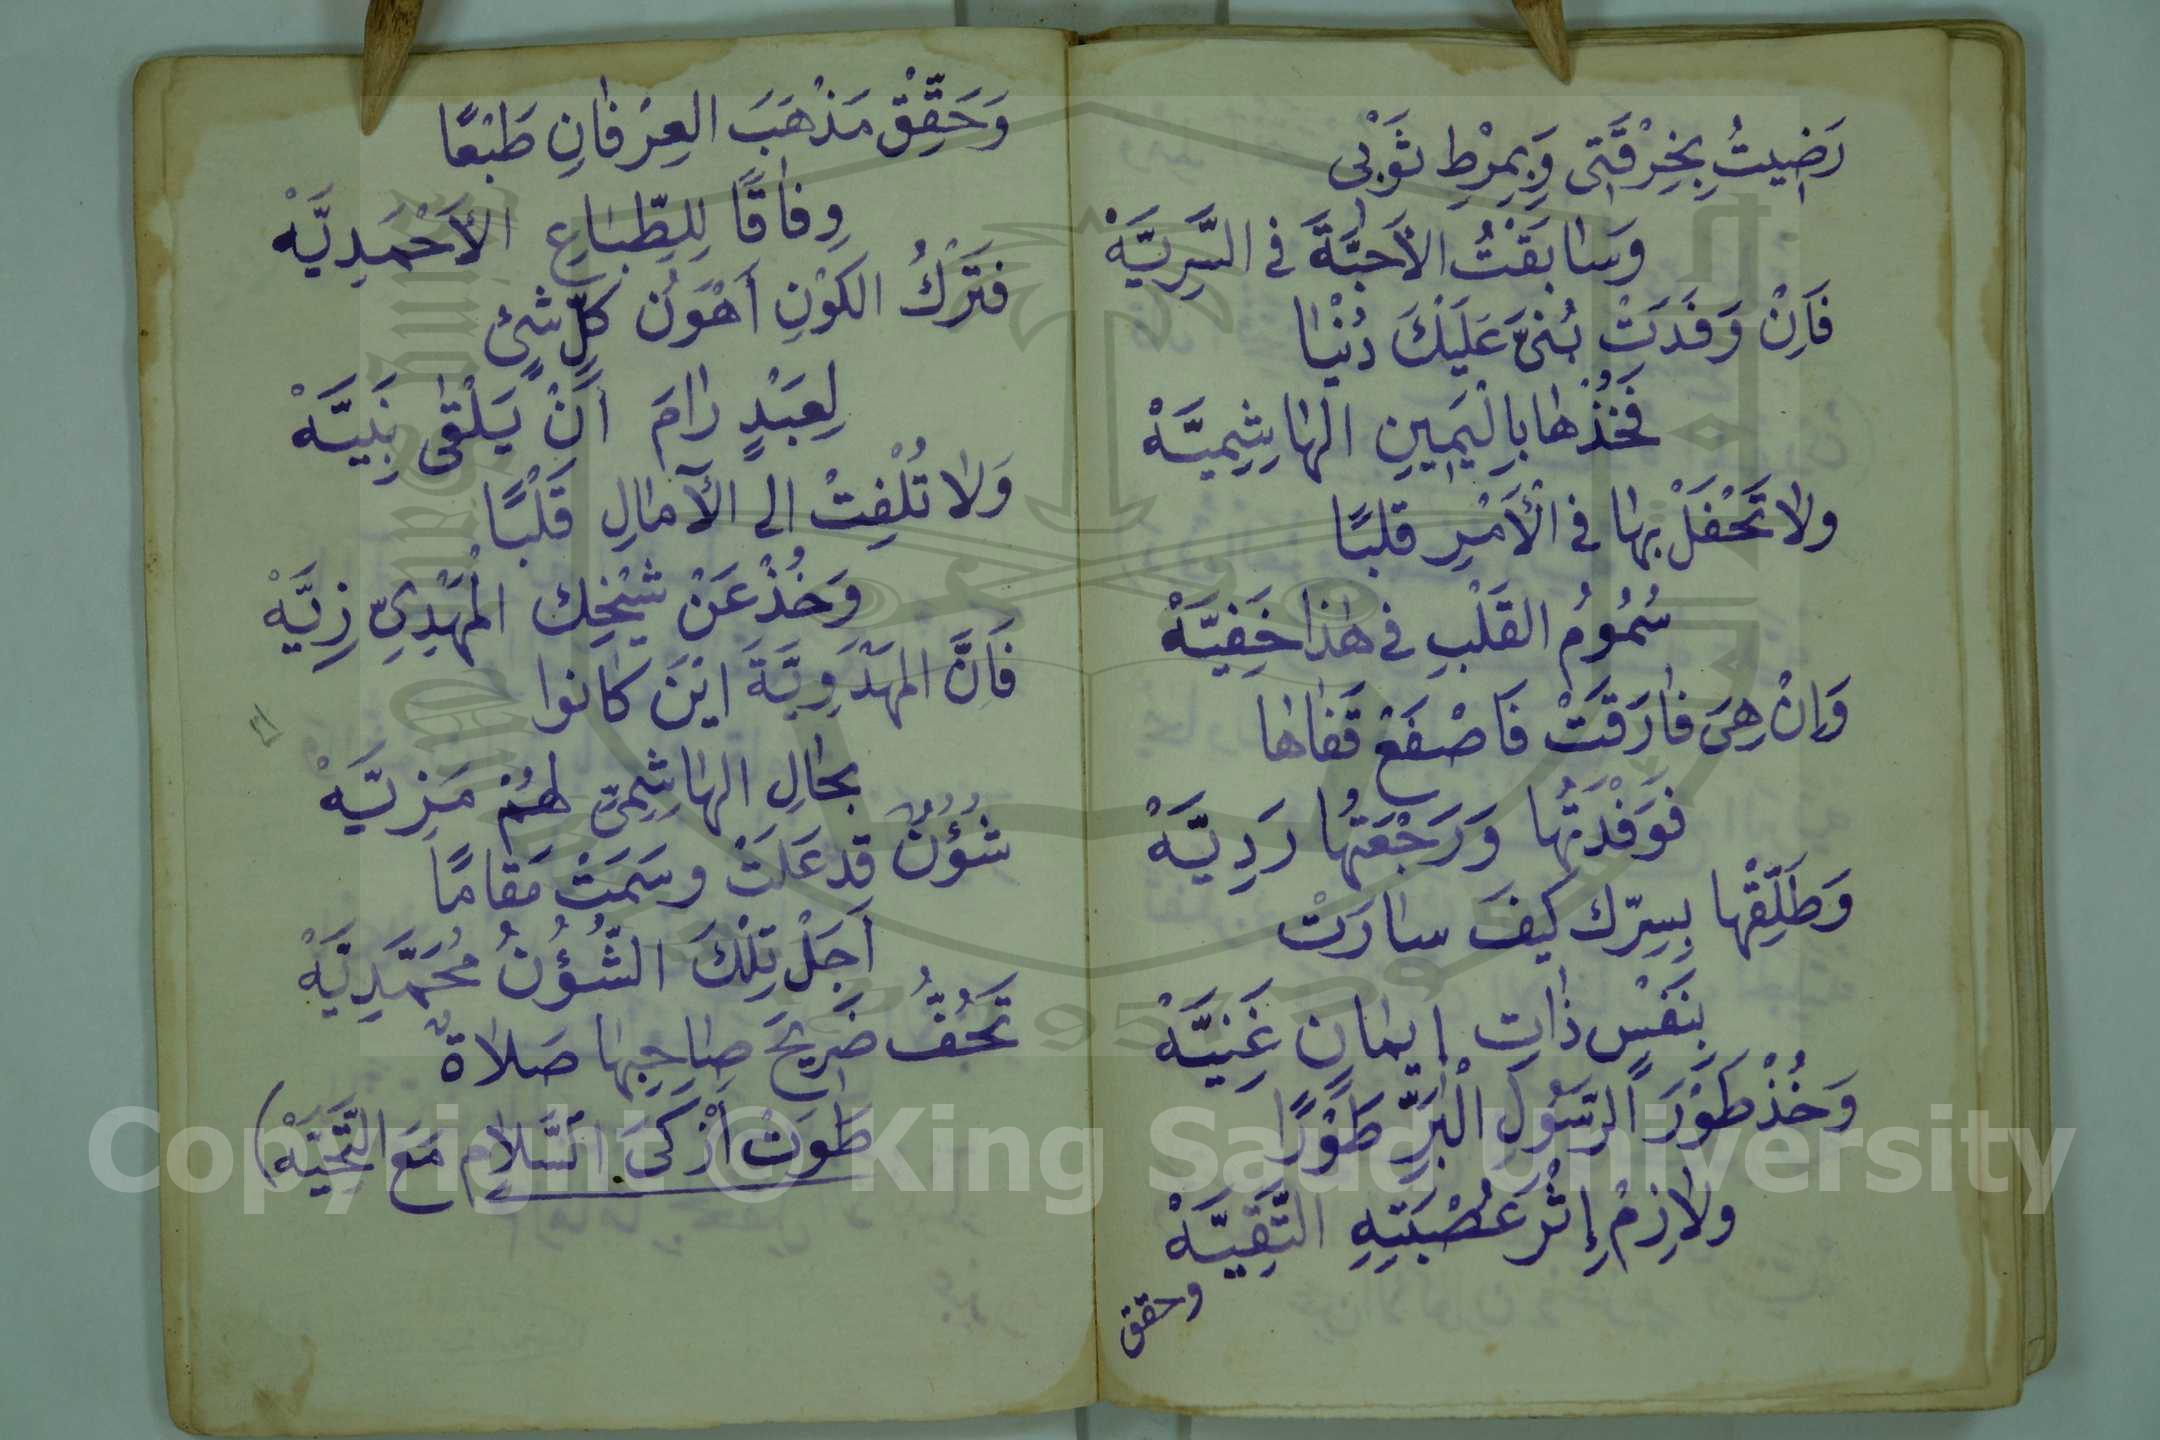 رَضِيتُ بِخِرْقَتِي وَبِمِرْطِ ثَوْبِي
وَسَابَقْتُ الأَحِبَّةَ في السَّرِيَّةْ
فَاِنْ وَفَدَتْ بُنَيَّ عَلَيْكَ دُنْيَا
فَخُذْهَا بِالْيَمِينِ الهَاشِمِيَّةْ
ولا تَحْفَلْ بِهَا في الْأَمْرِ قلبًا
سُمُومُ القَلْبِ في هٰذا خَفِيَّةْ
وَإنْ هِيَ فَارَقَتْ فَاصْفَعْ قَفَاهَا
فَوَفْدَتُهَا وَرَجْعَتُهَا رَدِيَّةْ
وَطَلِّقْهَا بِسِرِّك كيفَ سارَتْ
بِنَفْسٍ ذَاتِ إيمَانٍ غَنِيَّةْ
وَخُذْ طَوْرَ الرَّسُولِ الْبَرِّ طَوْرًا
ولَازِمْ إِثْرَ عُصْبَتِهِ التَّقِيَّةْ
وحقق
وَحَقِّقْ مَذْهَبَ العِرْفَانِ طَبْعًا
وِفَاقًا لِلطِّبَاعِ الأَحْمَدِيَّةْ
فَتَرْكُ الكَوْنِ أَهْوَنُ كلِّ شيءٍ
لِعَبْدٍ رَامَ أَنْ يَلْقَى نَبِيَّهْ
وَلَا تُلْفِتْ الى الآمَالِ قَلْبًا
وَخُذْ عَنْ شَيْخِك الْمَهْدِيِّ زِيَّهْ
فَاِنَّ المَهْدَوِيَّةَ اينَ كانوا
بِحَالِ الهَاشِمِيِّ لهُمْ مَزِيَّةْ
شُؤُنٌ قد عَلَتْ وسَمَتْ مَقامًا
اَجَلْ تِلْكَ الشُّؤُنُ مُحَمَّدِيَّةْ
تَحُفُّ ضَرِيحَ صَاحِبِهَا صَلَاةٌ
طَوَتْ أَزْكَى السَّلَامِ مَعَ التَّحِيَّةْ)
Copyright © King Saud University
1957